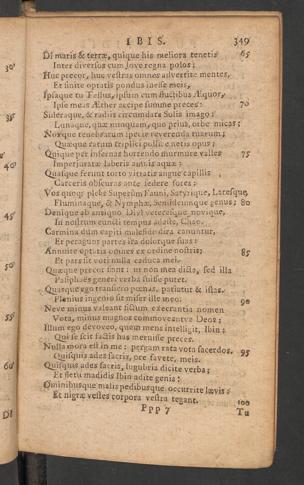 IBIS. 349
Dî maris & terræ, quique his meliora tenetis 65
Inter diversos cum Jove regna polos;
Huc precor, huc vestras omnes advertite mentes,
Et sinite optatis pondus inesse meis,
Ipsaque tu Tellus, ipsum cum fluctibus Æquor,
Ipse meas Æther accipe summe preces: 70
Sideraque, & radiis circumdata Solis imago;
Lunaque, quæ nunquam, quo prius, orbe micas;
Noxque tenebrarum specie reverenda tuarum;
Quæque ratum triplici pollice netis opus;
Quique per infernas horrendo murmure valles 75
Imperjuratæ laberis amnis aquæ:
Quasque ferunt torto vittatis angue capillis
Carceris obscuras ante sedere fores:
Vos quoque plebs Superûm Fauni, Satyrique, Laresque,
Fluminaque, & Nymphæ, Semideumque genus; 80
Denique ab antiquo Divi veteresque novique,
In nostrum cuncti tempus adeste, Chao.
Carmina dum capiti male fida dira canuntur,
Et peragunt partes ira dolorque suas:
Annuite optatis omnes ex ordine nostris; 85
Et pars sit voti nulla caduca mei.
Quæque precor fiant: ut non mea dicta, sed illa
Pasiphaës generi verba fuisse putet.
Quasque ego transiero pœnas, patiatur & istas.
Plenius ingenio sit miser ille meo. 90
Neve minus valeant fictum execrantia nomen
Vota, minus magnos commoveantve Deos;
Illum ego devoveo, quem mens intelligit, Ibin;
Qui se scit factis has meruisse preces.
Nulla mora est in me: pergam rata vota sacerdos. 95
Quisquis ades sacris, ore favete, meis.
Quisquis ades sacris, lugubria dicite verba;
Et fletu madidis Ibin adite genis:
Ominibusque malis pedibusque occurrite lævis:
Et nigræ vestes corpora vestra tegant. 100
Ppp 7 Tu